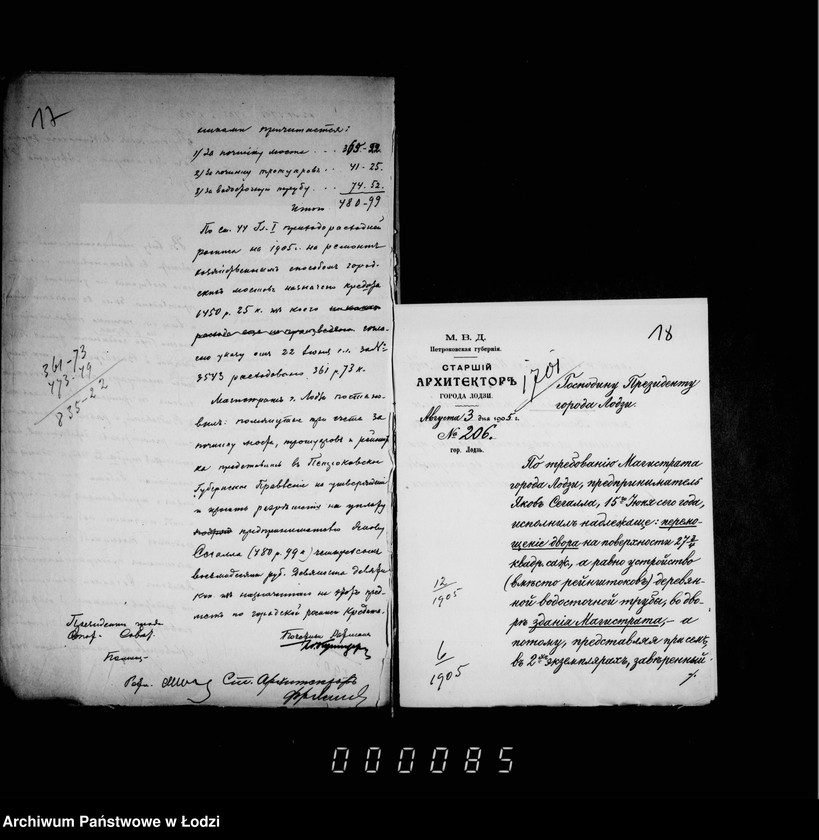 17
1/ За починку моста ... 365-22
2/ За починку тротуаровъ . 41-25.
3/ за водосточную трубу ... 74.52.
Итого 480-99
По ст. 44 Гл. I приходорасходной
росписи на 1905 г. на ремонтъ
хозяйственнымъ способомъ город-
скихъ мостовъ назначено кредита
6450 р. 25 к. изъ коего
указу отъ 22 Іюня с.г. за №
3543 расходовано 361 р. 73 к.
361-73
473-49
835-22
Магистратъ г. Лодзи постано-
вилъ: при счета за
починку моста, тротуаровъ и
представить въ Петроковское
Губернское Правленіе на утвержденіе
и просить разрѣшенія на уплату
предпринимателю Якову
Сегалла (480 р. 99 к) четыреста
восемьдесятъ руб. девяносто девять
коп. изъ назначеннаго на пред-
метъ по городской росписи кредита.
Президентъ
Ст. Архитекторъ
18
М. В. Д.
Петроковская губернія.
СТАРШІЙ
АРХИТЕКТОРЪ
ГОРОДА ЛОДЗИ.
Августа 3 дня 1905 г.
№ 206.
гор. Лодзь.
1701
Господину Президенту
города Лодзи.
По требованію Магистрата
города Лодзи, предприниматель
Яковъ Сегалла, 15го Іюня сего года,
исполнилъ надлежаще: перемо-
щеніе двора на поверхности 27
квадр. саж., а равно устройство
(вмѣсто рейнштоковъ) деревян-
ной водосточной трубы, во дво-
рѣ зданія Магистрата, – а
потому, представляя при семъ,
въ 2хъ экземплярахъ, завѣренный
12/1905
6/1905
000085
Archiwum Państwowe w Łodzi